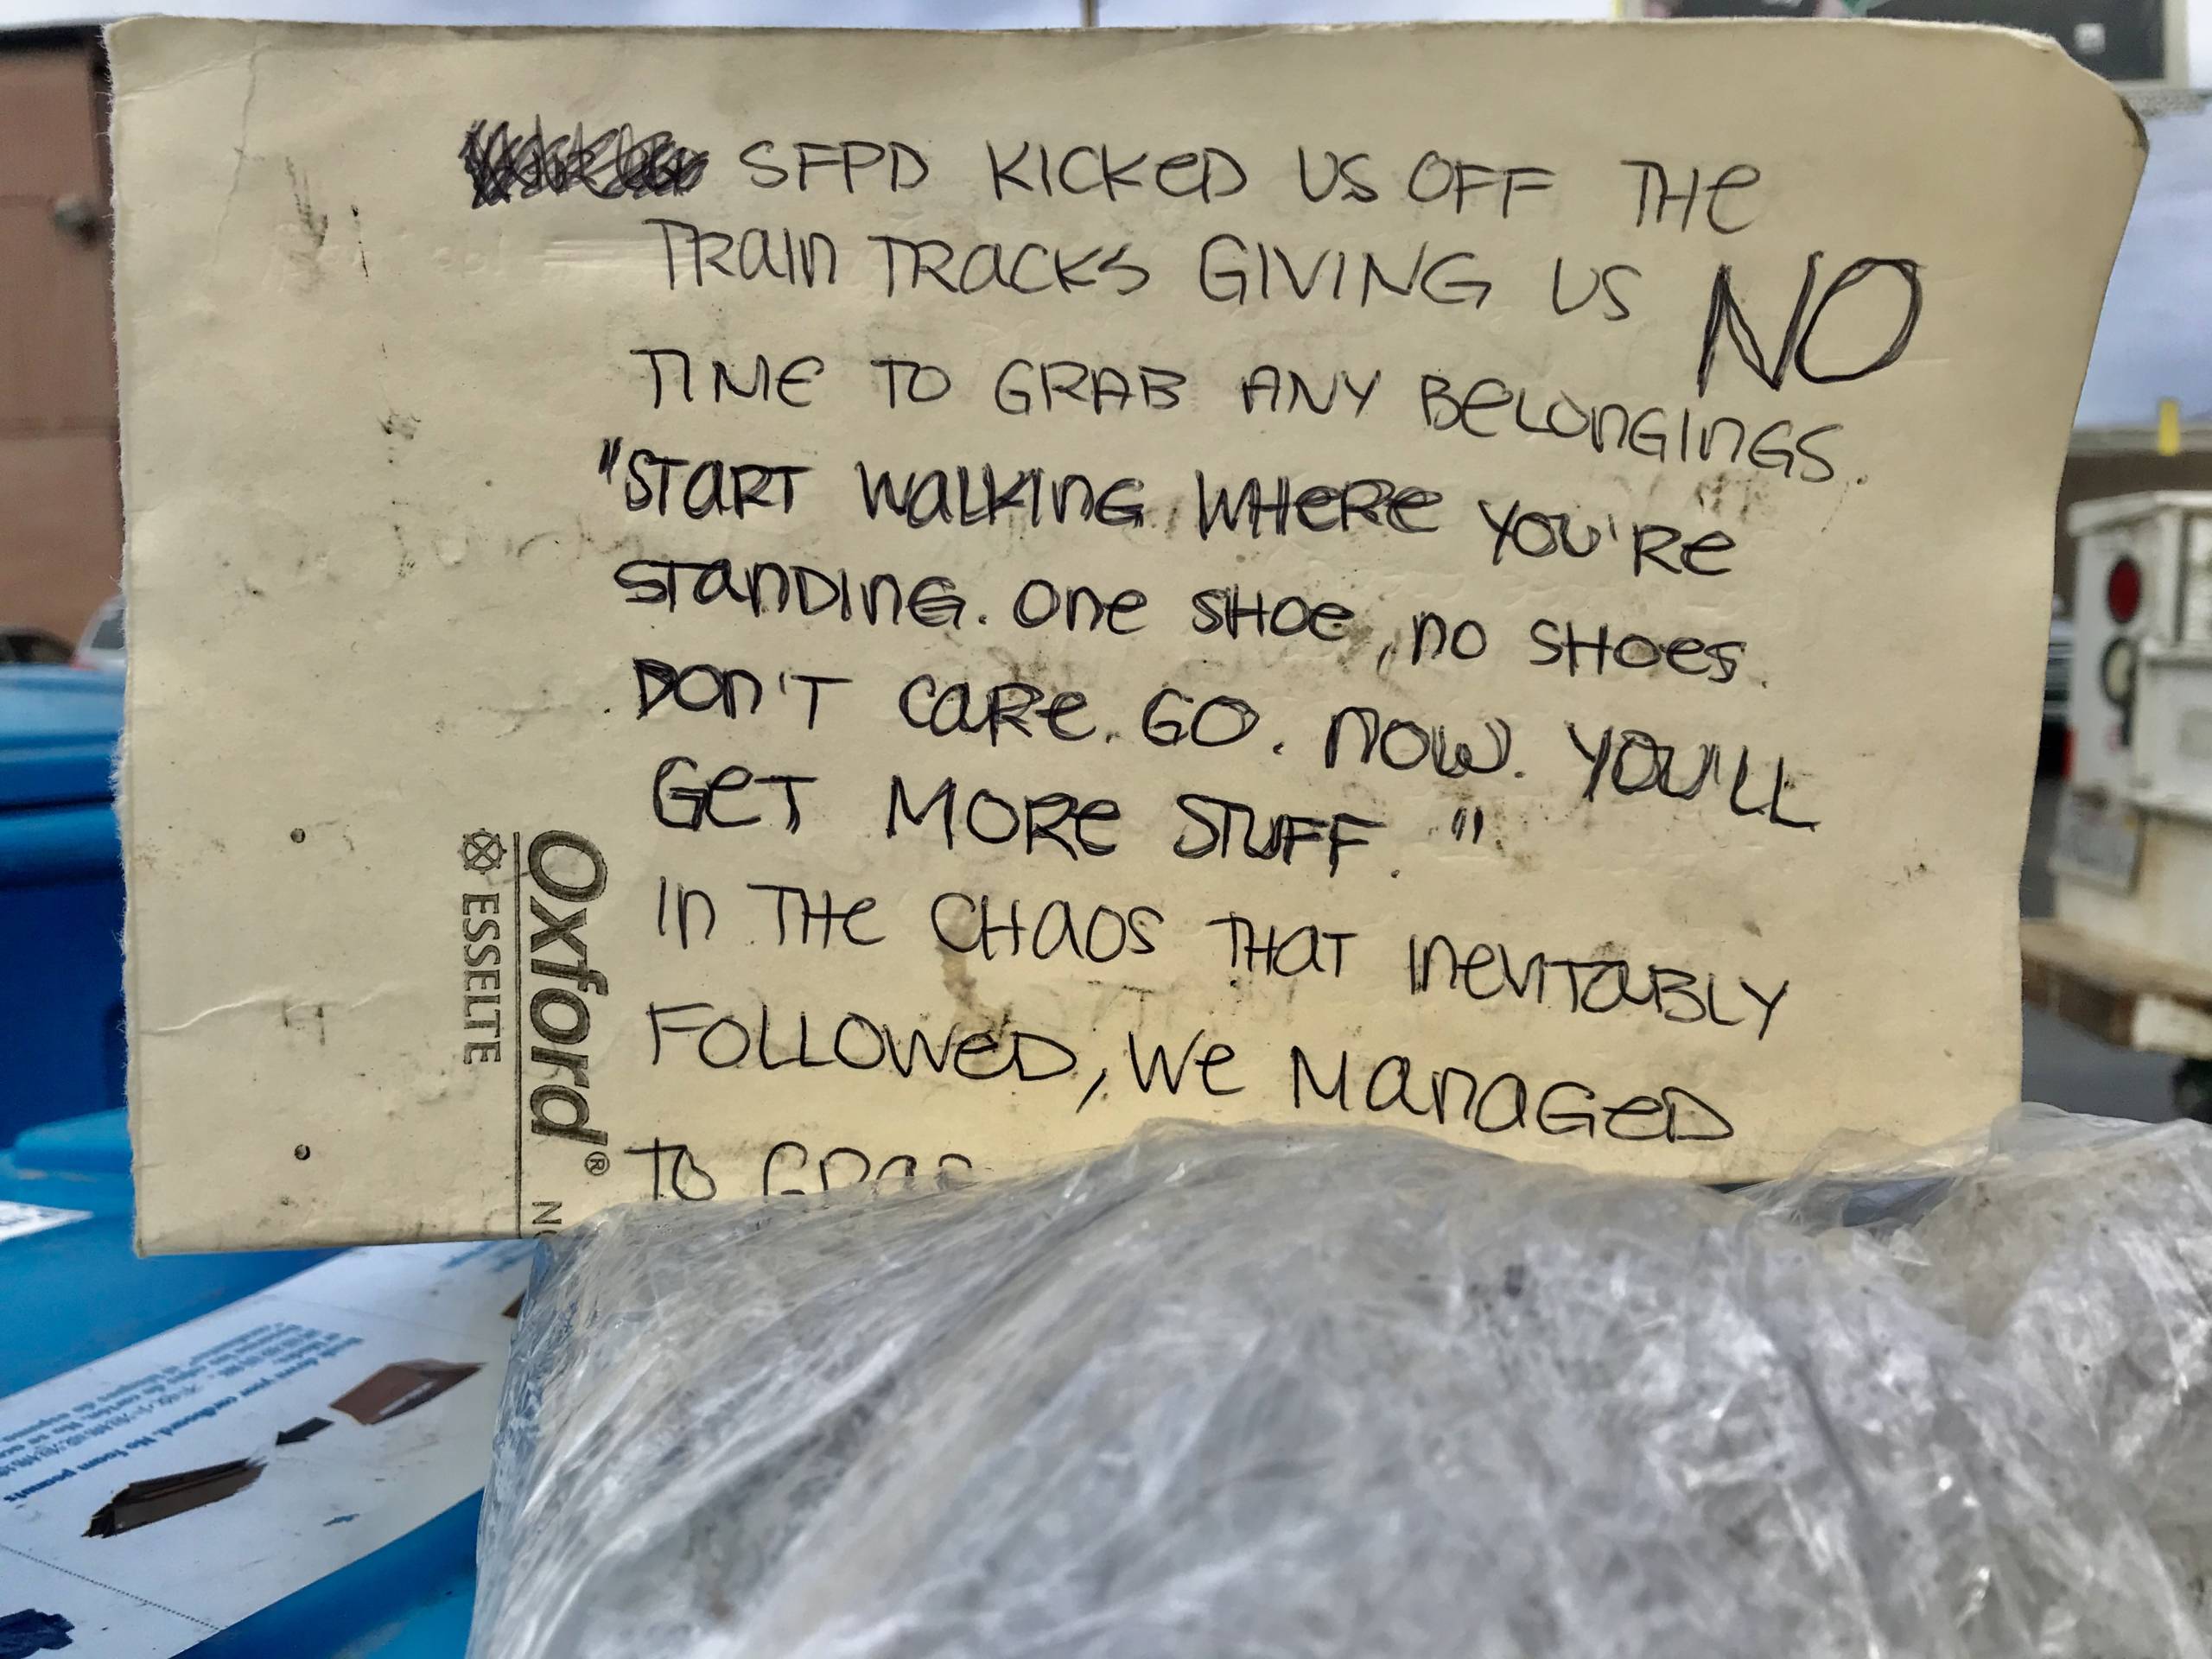 SFPD KICKED US OFF THE
TRAIN TRACKS GIVING US NO
TIME TO GRAB ANY BELONGINGS.
"START WALKING WHERE YOU'RE
STANDING. ONE SHOE, NO SHOES.
DON'T CARE. GO. NOW. YOU'LL
GET MORE STUFF."
IN THE CHAOS THAT INEVITABLY
FOLLOWED, WE MANAGED
TO GRAB
Oxford®
ESSELTE